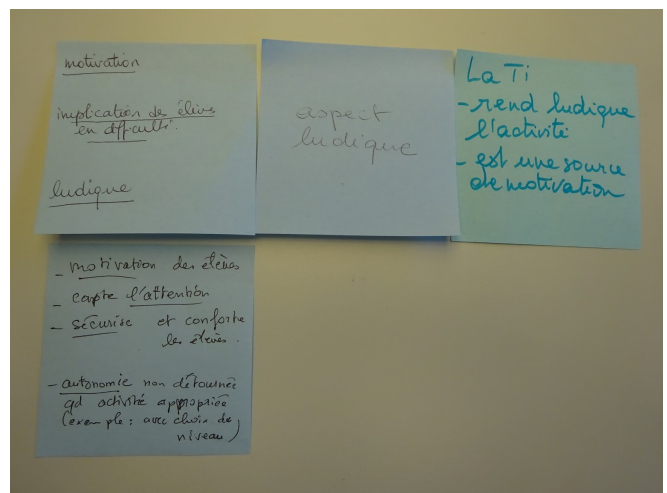 motivation
implication des élèves
en difficulté.
ludique
aspect
ludique
La Ti
- rend ludique
l'activité
- est une source
de motivation
- motivation des élèves
- capte l'attention
- sécurise et conforte
les élèves.
- autonomie non détournée
qd activité appropriée
(exemple : avec choix de
niveau)